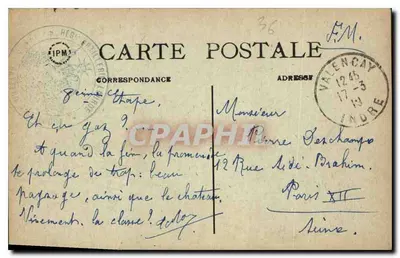 36
F.M.
IPM
CARTE POSTALE
CORRESPONDANCE
ADRESSE
VALENCAY
12 45
17 - 3
INDRE
Étape.
Et en gaz ? ...
A quand la fin, la promenade
se prolonge de trop : beau
paysage, ainsi que le chateau.
Vivement la classe !
Monsieur
Pierre Deschamps
12 Rue Sidi-Brahim.
Paris XII
Seine.
CPARAMA